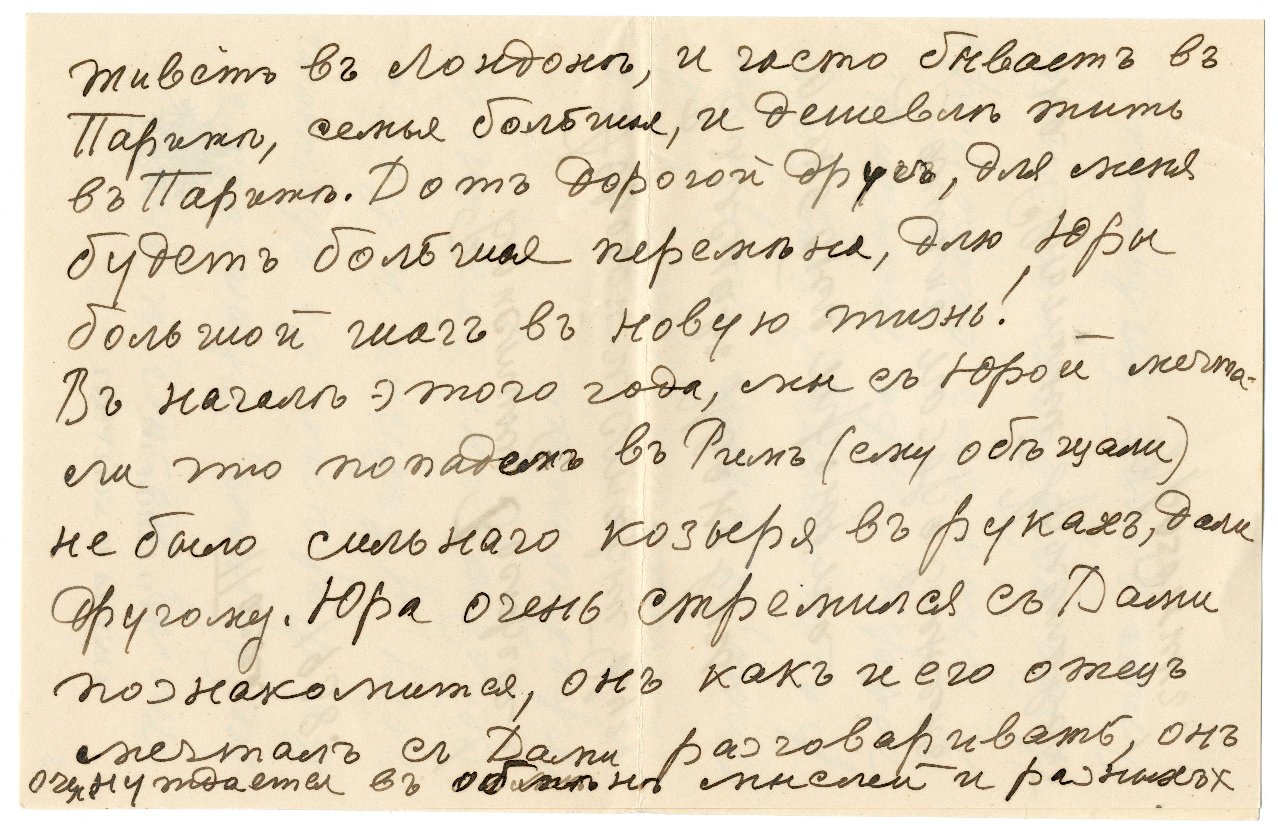 живетъ въ Лондонѣ, и часто бываетъ въ
Парижѣ, семья большая, и дешевлѣ жить
въ Парижѣ. Вотъ дорогой другъ, для меня
будетъ большая перемѣна, для Юры
большой шагъ въ новую жизнь!
Въ началѣ этого года, мы съ Юрой мечта-
ли что попадемъ въ Римъ (ему объщали)
не было сильнаго козыря въ рукахъ, дали
другому. Юра очень стремился съ Вами
познакомится, онъ какъ и его отецъ
мечталъ съ Вами разговаривать, онъ
очень нуждается въ обмѣнѣ мыслей и разныхъ